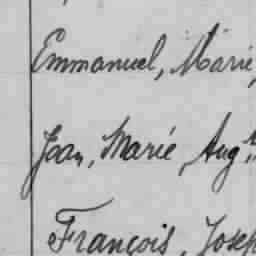 Emmanuel, Marie,
Jean, Marie, Aug.
François, Josep